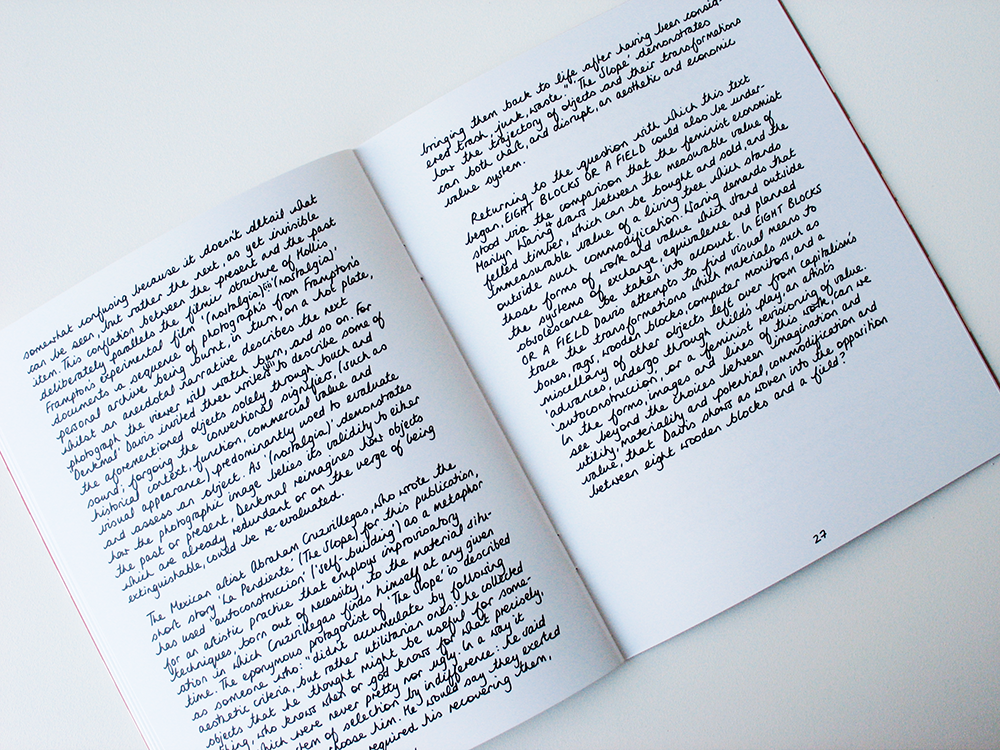 somewhat confusing because it doesn't detail what
can be seen, but rather the next, as yet invisible
item. This conflation between the present and the past
deliberately parallels the filmic structure of Hollis
Frampton's experimental film '(nostalgia)'.iii '(nostalgia)'
documents a sequence of photographs from Frampton's
personal archive being burnt, in turn, on a hot plate,
whilst an anecdotal narrative describes the next
photograph the viewer will watch burn, and so on. For
'Denkmal' Davis invited three writers to describe some of
the aforementioned objects solely through touch and
sound; forgoing the conventional signifiers, (such as
historical context, function, commercial value and
visual appearance,) predominantly used to evaluate
and assess an object. As '(nostalgia)' demonstrates
how the photographic image belies its validity to either
the past or present, Denkmal reimagines how objects
which are already redundant or on the verge of being
extinguishable, could be re-evaluated.
The Mexican artist Abraham Cruzvillegas, who wrote the
short story 'La Pendiente' (The Slope) for this publication,
has used 'autoconstruccion' ('self-building') as a metaphor
for an artistic practice that employs improvisatory
techniques, born out of necessity, to the material situ-
ation in which Cruzvillegas finds himself at any given
time. The eponymous protagonist of 'The Slope' is described
as someone who: "didn't accumulate by following
aesthetic criteria, but rather utilitarian ones: he collected
objects that he thought might be useful for some-
thing, who knows when or god knows for what precisely,
which were never pretty nor ugly. In a way it
of selection by indifference: he said
choose him. He would say they exerted
required his recovering them,
bringing them back to life after having been consid-
ered trash, junk, waste." 'The Slope' demonstrates
how the trajectory of objects and their transformations
can both chart, and disrupt, an aesthetic and economic
value system.
Returning to the question with which this text
began, EIGHT BLOCKS OR A FIELD could also be under-
stood via the comparison that the feminist economist
Marilyn Waring draws between the measurable value of
felled timber, which can be bought and sold, and the
immeasurable value of a living tree which stands
outside such commodification. Waring demands that
those forms of work and value which stand outside
the systems of exchange, equivalence and planned
obsolescence be taken into account. In EIGHT BLOCKS
OR A FIELD Davis attempts to find visual means to
trace the transformations which materials such as
bones, rags, wooden blocks, computer monitors, and a
miscellany of other objects left over from capitalism's
'advances', undergo through child's play, an artist's
'autoconstruccion', or a feminist revisioning of value.
In the forms, images and lines of this work can we
see beyond the choices between imagination and
utility, materiality and potential, commodification and
value, that Davis shows as woven into the opposition
between eight wooden blocks and a field?
27